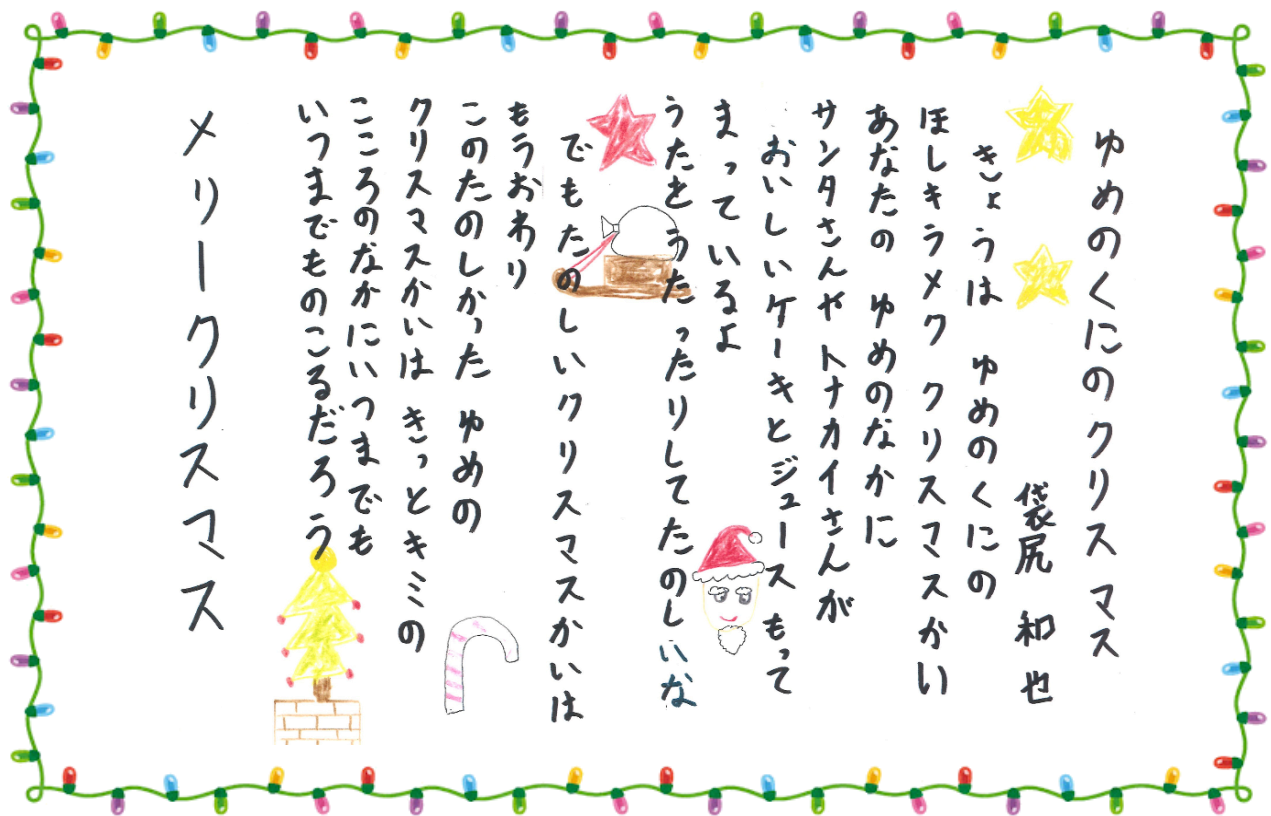 ゆめのくにのクリスマス
袋尻 和也
きょうは ゆめのくにの
ほしキラメク クリスマスかい
あなたの ゆめのなかに
サンタさんや トナカイさんが
おいしいケーキとジュース もって
まっているよ
うたを うたったりしてたのしいな
でもたのしいクリスマスかいは
もうおわり
このたのしかった ゆめの
クリスマスかいは きっとキミの
こころのなかにいつまでも
いつまでものこるだろう
メリークリスマス